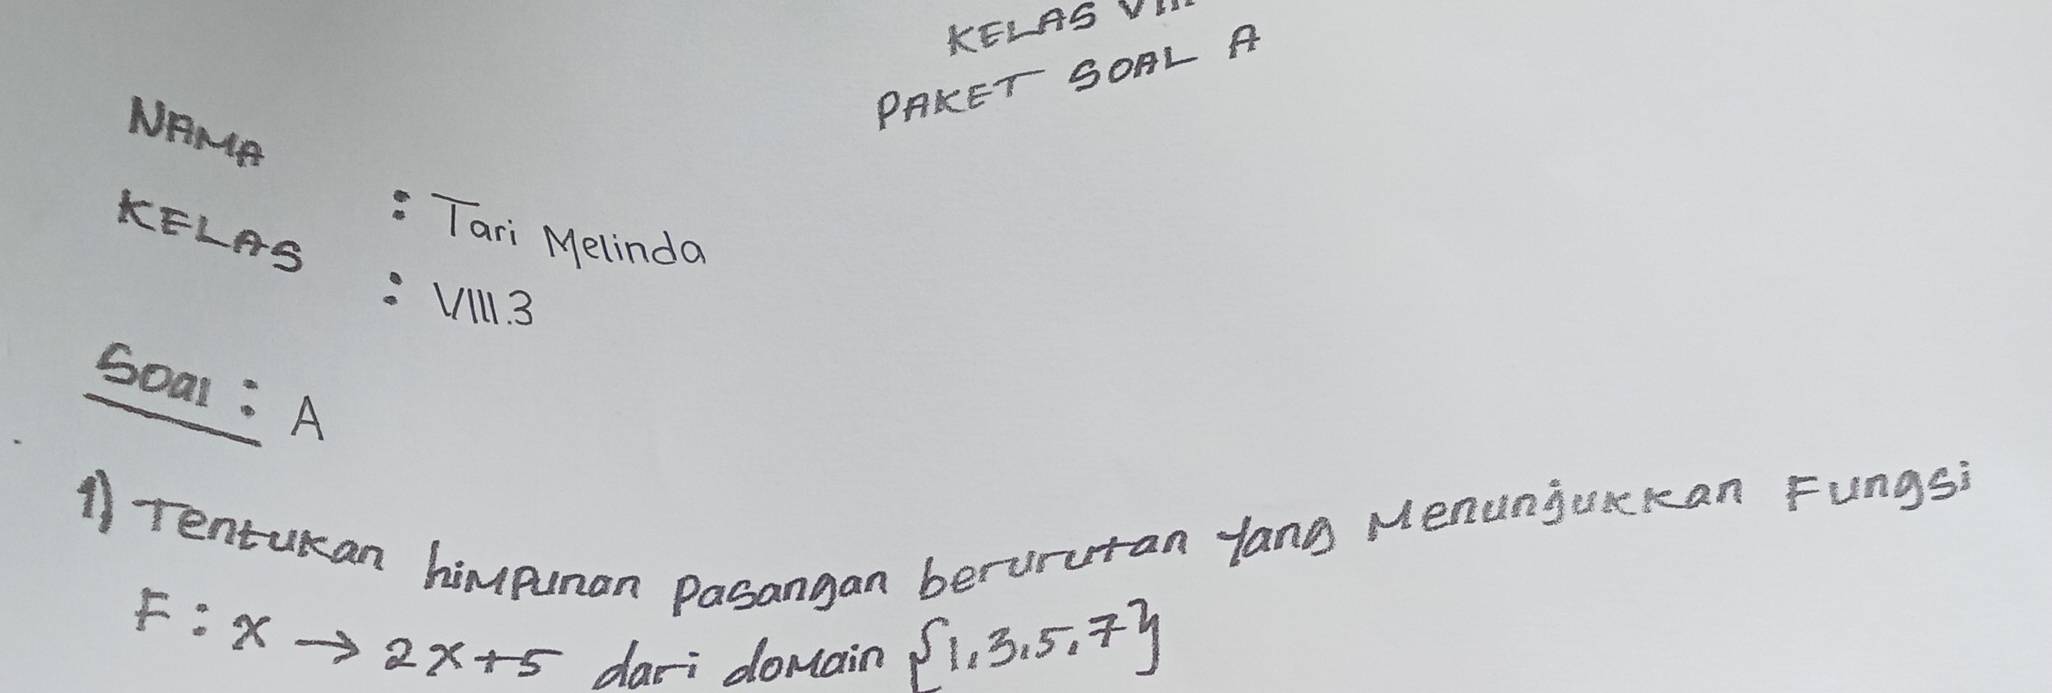 KELAS VIII
PAKET SOAL A
NAMA : Tari Melinda
KELAS : VIII.3
Soal : A
1) Tentukan himpunan Pasangan berurutan yang Menunjukkan Fungsi
F : x → 2x+5 dari domain {1,3,5,7}